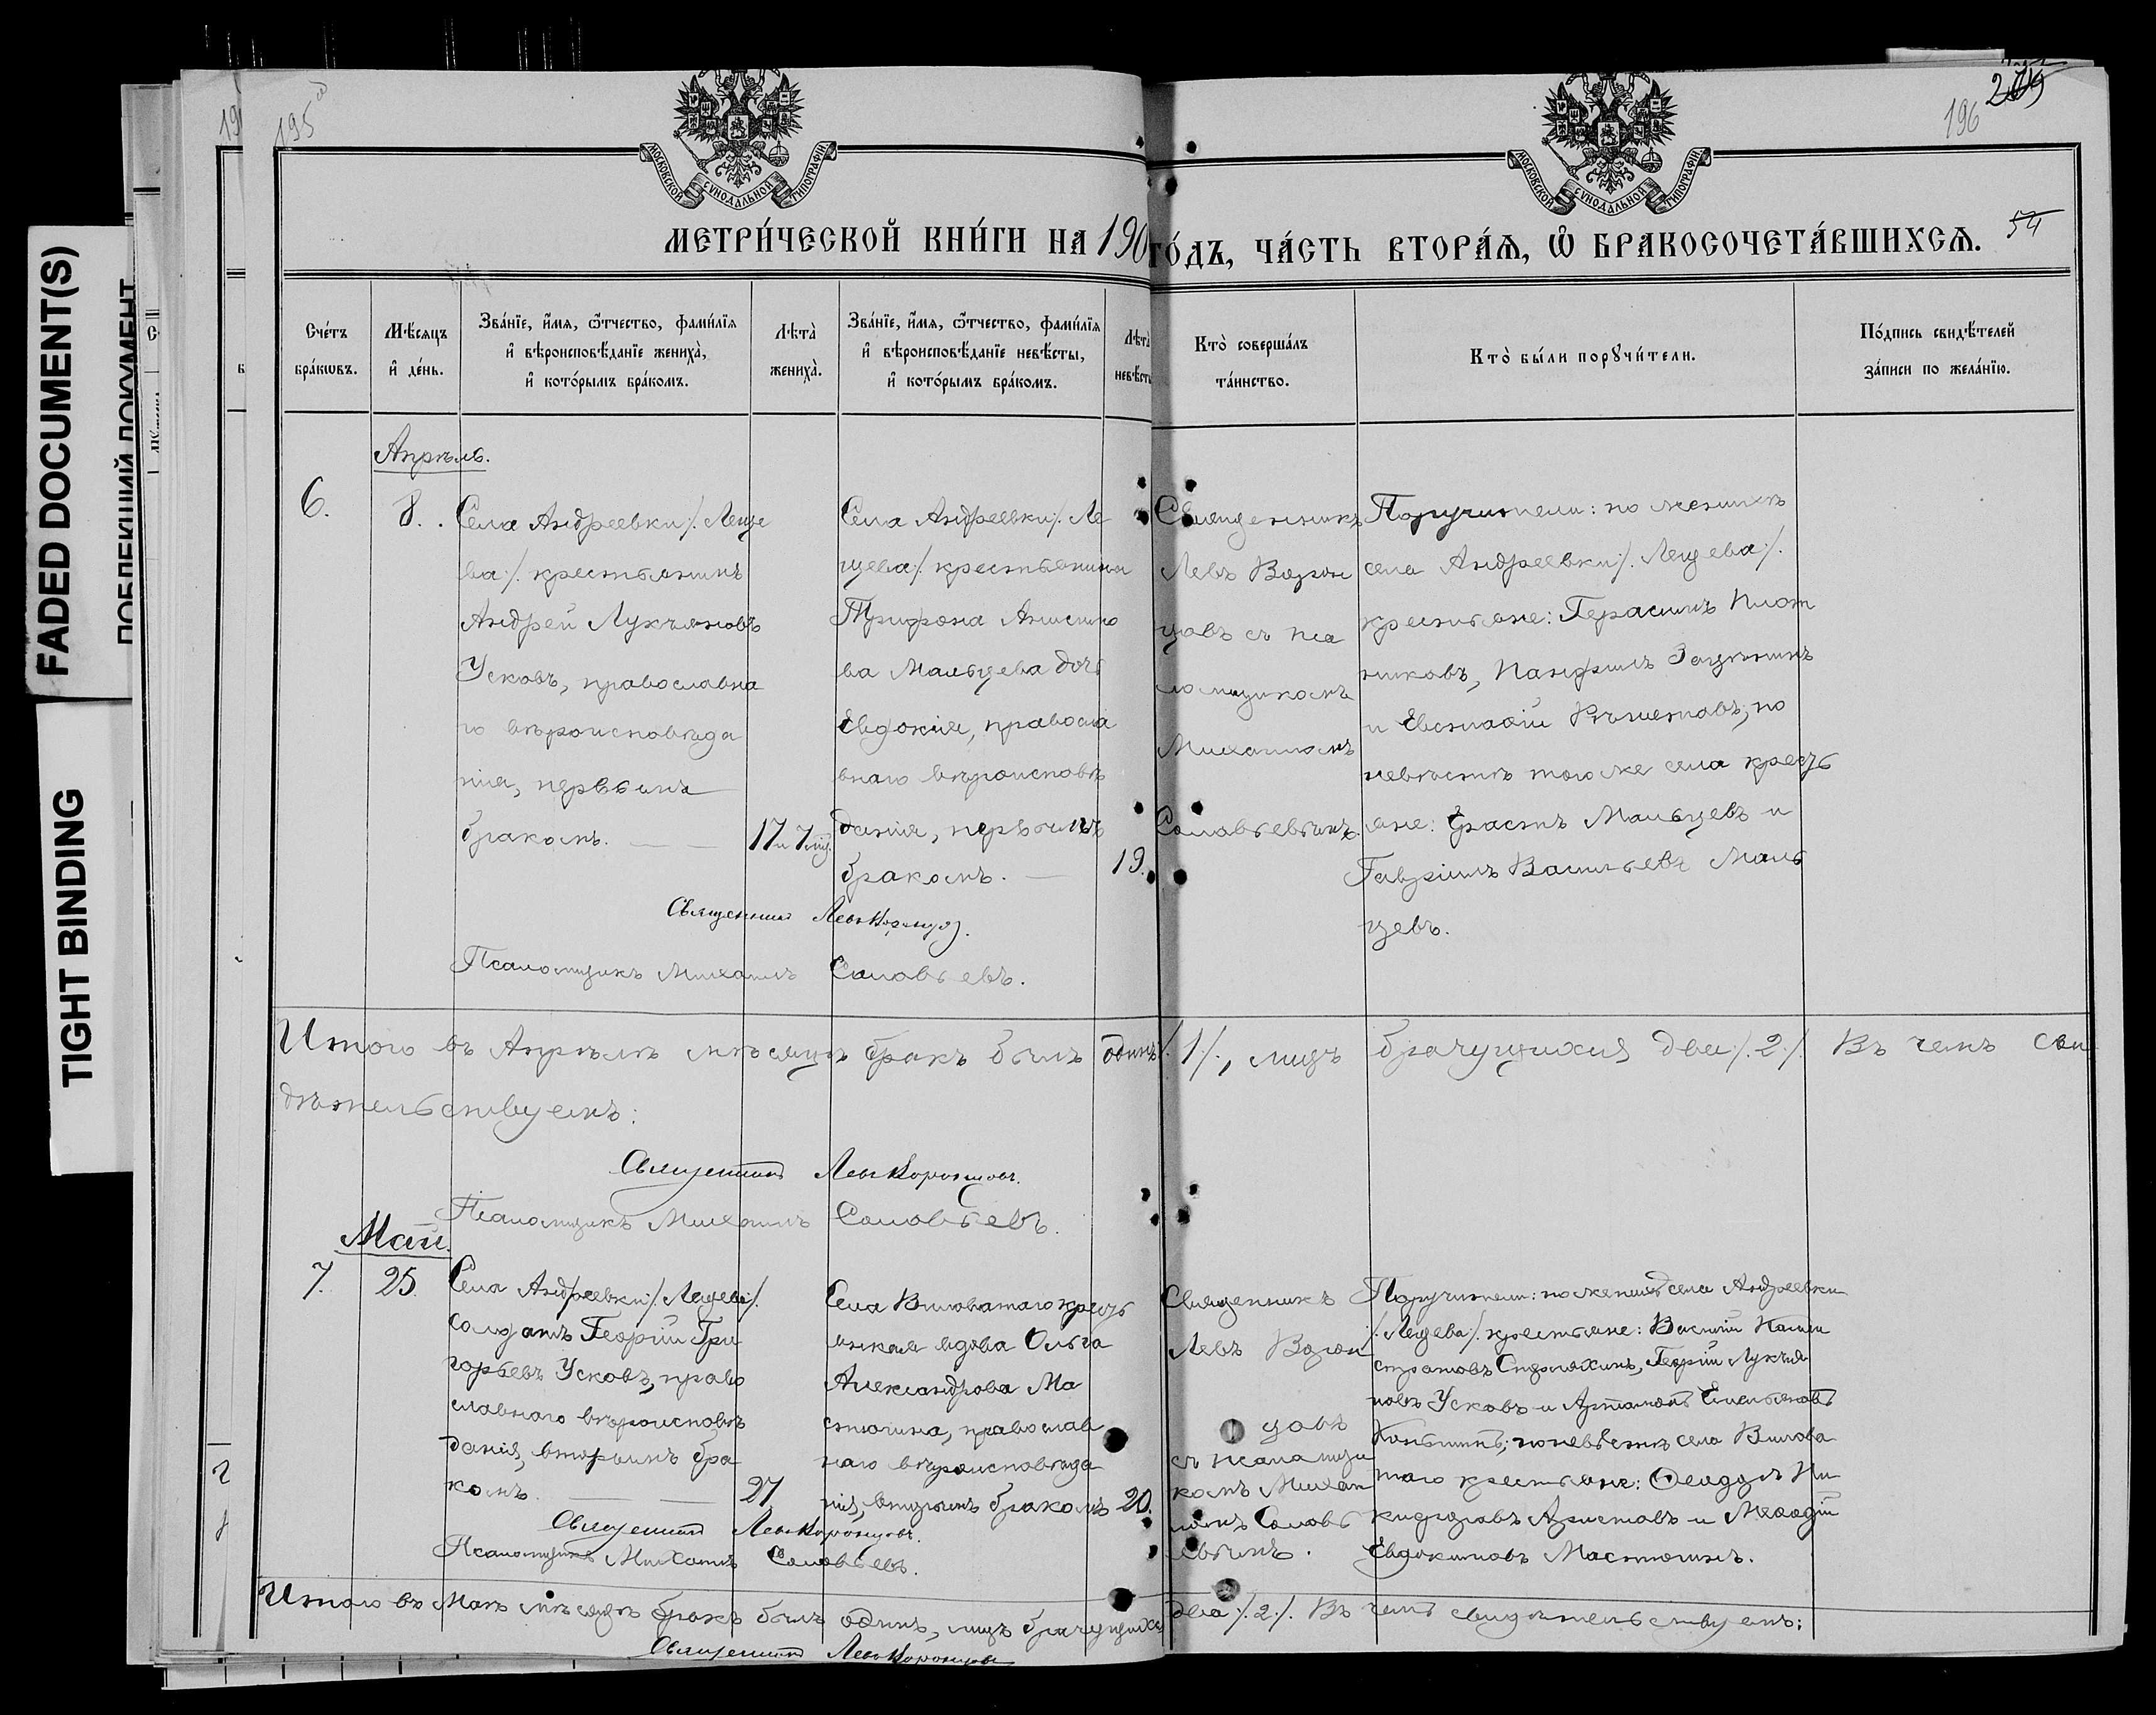 FADED DOCUMENT(S)
TIGHT BINDING
195 об
196
54
МОСКОВСКОЙ СѴНОДАЛЬНОЙ ТИПОГРАФІИ
МОСКОВСКОЙ СѴНОДАЛЬНОЙ ТИПОГРАФІИ
МЕТРИ́ЧЕСКОЙ КНИ́ГИ НА 190
ГО́ДЪ, ЧА́СТЬ ВТОРА́Ѧ, Ѽ БРАКОСОЧЕТА́ВШИХСѦ.
Сче́тъ
бра́кѡвъ.
Мѣ́сяцъ
и҆ де́нь.
Зва́нїе, и҆́мя, ѻ҆́тчество, фами́лїя
и҆ вѣроисповѣ́данїе жениха̀,
и҆ кото́рымъ бра́комъ.
Лѣта̀
жениха̀.
Зва́нїе, и҆́мя, ѻ҆́тчество, фами́лїя
и҆ вѣроисповѣ́данїе невѣ́сты,
и҆ кото́рымъ бра́комъ.
Лѣта̀
невѣ́сты
Кто̀ соверша́лъ
та́инство.
Кто̀ бы́ли порꙋчи́тели.
По́дпись свидѣ́телей
за́писи по жела́нїю.
Апрѣль.
6.
8.
Села Андреевки /. Леще
ва ./ крестьянинъ
Андрей Лукьяновъ
Усковъ, православна
го вѣроисповѣда
нія, первымъ
бракомъ.
17 и 7 мѣс.
Села Андреевки /. Ле
щева ./ крестьянина
Трифона Анисимо
ва Мальцева дочь
Евдокія, правосла
внаго вѣроисповѣ
данія, первымъ
бракомъ.
19.
Священникъ
Левъ Ворон
цовъ съ пса
ломщикомъ
Михаиломъ
Соловьевымъ.
Поручители: по женихѣ
села Андреевки /. Лещева ./
крестьяне: Герасимъ Плот
никовъ, Панфилъ
и Евстафій; по
невѣстѣ того же села кресть
яне: Ерастъ Мальцевъ и
Гавріилъ Васильевъ Маль
цевъ.
Священникъ Левъ Воронцовъ.
Псаломщикъ Михаилъ Соловьевъ.
Итого въ Апрѣлѣ мѣсяцѣ бракъ былъ одинъ /. 1 ./, лицъ брачущихся два /. 2 ./ Въ чемъ сви
дѣтельствуемъ:
Священникъ Левъ Воронцовъ.
Псаломщикъ Михаилъ Соловьевъ.
Май.
7.
25.
Села Андреевки /. Лещева ./
солдатъ Георгій Гри
горьевъ Усковъ, право
славнаго вѣроисповѣ
данія, вторымъ бра
комъ.
27
Села Виловатаго кресть
янская вдова Ольга
Александрова Ма
стюгина, православ
наго вѣроисповѣда
нія, вторымъ бракомъ
20.
Священникъ
Левъ Ворон
цовъ
съ псаломщи
комъ Михаи
ломъ Соловь
евымъ.
Поручители: по женихѣ села Андреевки
/. Лещева ./ крестьяне: Василій Кали
стратовъ, Георгій Лукья
новъ Усковъ и Артамонъ Емельяновъ
; по невѣстѣ села Вилова
таго крестьяне: Ѳеодоръ Ни
кифоровъ Аристовъ и Меѳодій
Евдокимовъ Мастюгинъ.
Священникъ Левъ Воронцовъ.
Псаломщикъ Михаилъ Соловьевъ.
Итого въ Маѣ мѣсяцѣ бракъ былъ одинъ, лицъ брачущихся два /. 2 ./. Въ чемъ свидѣтельствуемъ:
Священникъ Левъ Воронцовъ